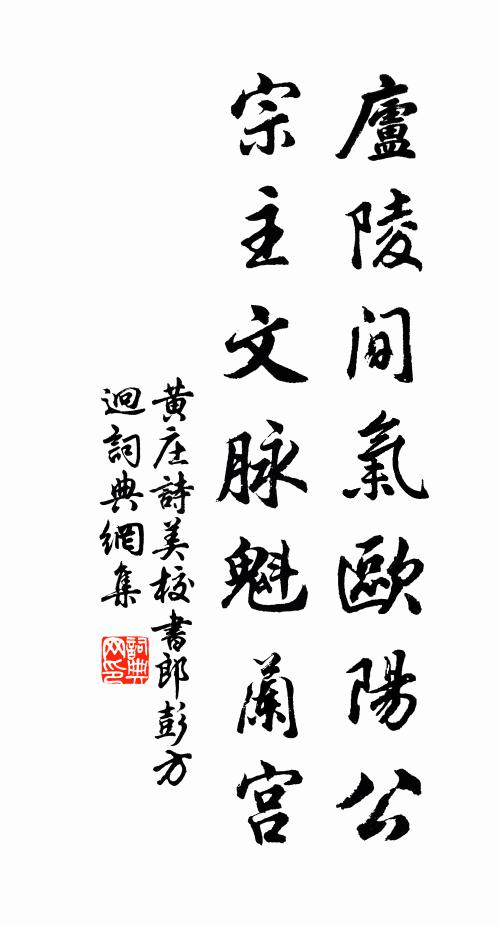 廬陵間氣歐陽公
宗主文脉魁蘭宫
黄庄詩美校書郎彭方
迥詞典網集
詞典網印